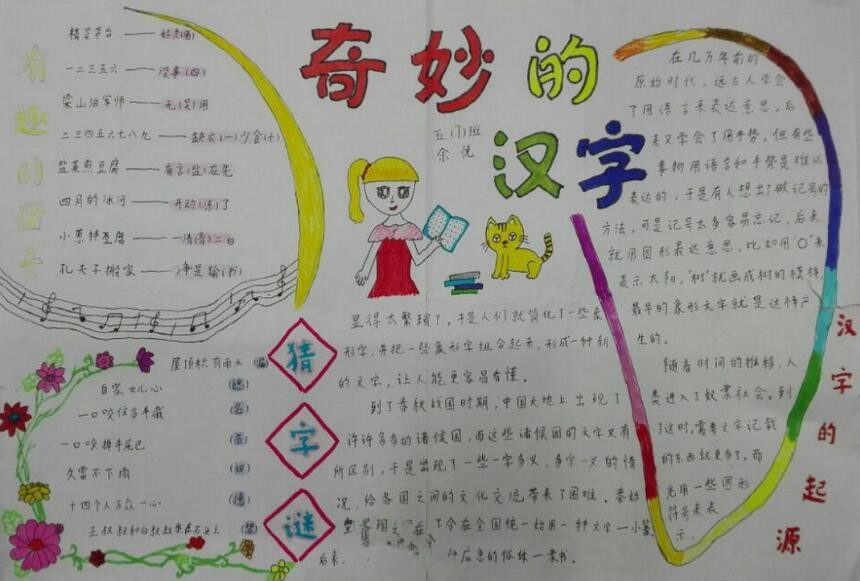 奇妙的
汉字
五(1)班
余悦
有趣的谐音
精装茅台——好(酒)
一二三五六——没事(四)
梁山泊军师——无(吴)用
二三四五六七八九——缺衣(一)少食(十)
盐蒸煎豆腐——有言(盐)在先
四月的冰河——开动(冻)了
小葱拌豆腐——一清(青)二白
孔夫子搬家——净是输(书)
猜字谜
屋顶积有雨水
自家女儿心
一口咬住多半截
一口咬掉牛尾巴
久雷不下雨
十四个人万众一心
王叔叔和白叔叔坐在石头上
汉字的起源
在几万年前的
原始时代，远古人学会
了用语言来表达意思，后
来又学会了用手势，但有些
事物用语言和手势是难以
表达的，于是有人想出做记号的
方法，可是记号太多容易忘记，后来
就用图形表达意思，比如用"O"来
表示太阳，"树"就画成树的模样，
最早的象形文字就是这样产
生的。
随着时间的推移，人
类进入了奴隶社会。到
了这时，需要文字记载
的东西就更多了。而
光用一些图形
符号来表
示，
显得太繁琐了。于是人们就简化了一些象
形字，并把一些象形字组合起来，形成一种新
的文字，让人能更容易看懂。
到了春秋战国时期，中国大地上出现了
许许多多的诸侯国，而这些诸侯国的文字又有
所区别，于是出现了一些一字多义、多字一义的情
况，给各国之间的文化交流带来了困难。秦始
了令在全国统一始用一种文字—小篆
后来，